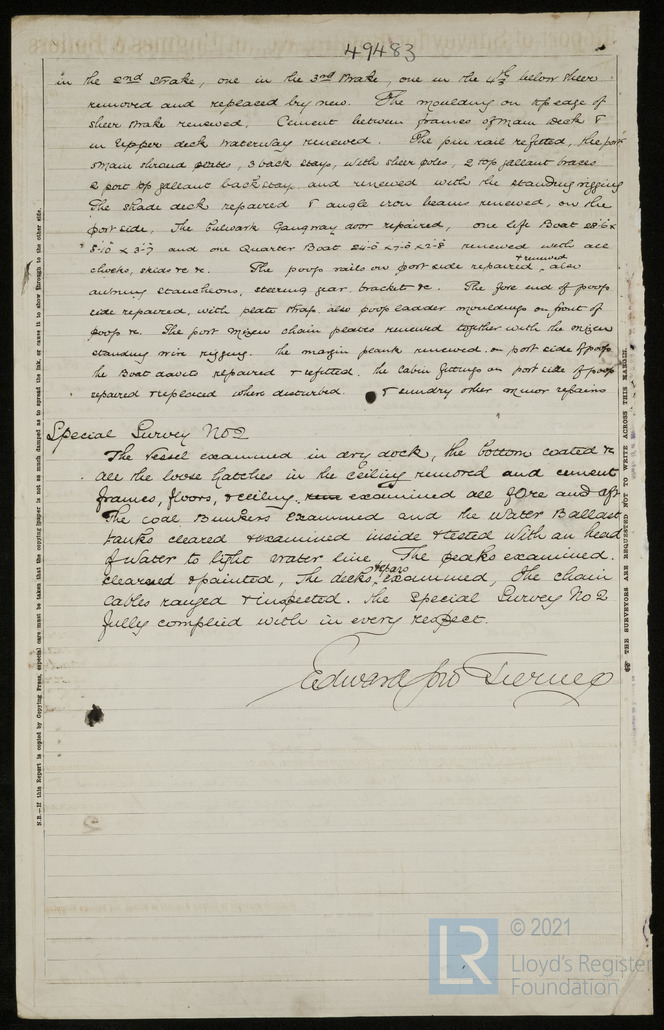 49483
in the 2nd strake, one in the 3rd strake, one in the 4th below sheer
removed and replaced by new. The moulding on top edge of
sheer strake renewed, Cement between frames of main deck &
in upper deck waterway renewed. The pin rail refitted, the port
main shroud plates, 3 back stays, with sheer poles, 2 top gallant braces
2 port top gallant backstay and renewed with the standing rigging
The shade deck repaired & angle iron beams renewed, on the
port side, The bulwark Gangway door repaired, one life Boat 28'6 x
8-10 x 3-7 and one Quarter Boat 24-0 x 7-0 x 2-8 renewed with all
chocks, skids &c &c. The poop rails on port side repaired & renewed, also
awning stanchions, steering gear, bracket &c. The fore end of poop
side repaired, with plate strap, also poop ladder mouldings on front of
poop &c. The port mizen chain plates renewed together with the mizen
standing wire rigging. the margin plank renewed on port side of poop
the Boat davits repaired & refitted. the cabin fittings on port side of poop
repaired & replaced where disturbed. & sundry other minor repairs
Special Survey No 2
The vessel examined in dry dock, the bottom coated &c
all the loose hatches in the ceiling removed and cement
frames, floors, & ceiling, examined all fore and aft
The coal Bunkers examined and the Water Ballast
tanks cleared & examined inside & tested with an head
of water to light water line, The peaks examined.
cleaned & painted, The decks, examined, The chain
cables ranged & inspected. The Special Survey No 2
fully complied with in every respect.
Edward Tierney
N.B.—If this Report is copied by Copying Press, especial care must be taken that the copying paper is not so much damped as to spread the ink, or cause it to show through to the other side.
THE SURVEYORS ARE REQUESTED NOT TO WRITE ACROSS THIS MARGIN.
LR
© 2021
Lloyd's Register
Foundation